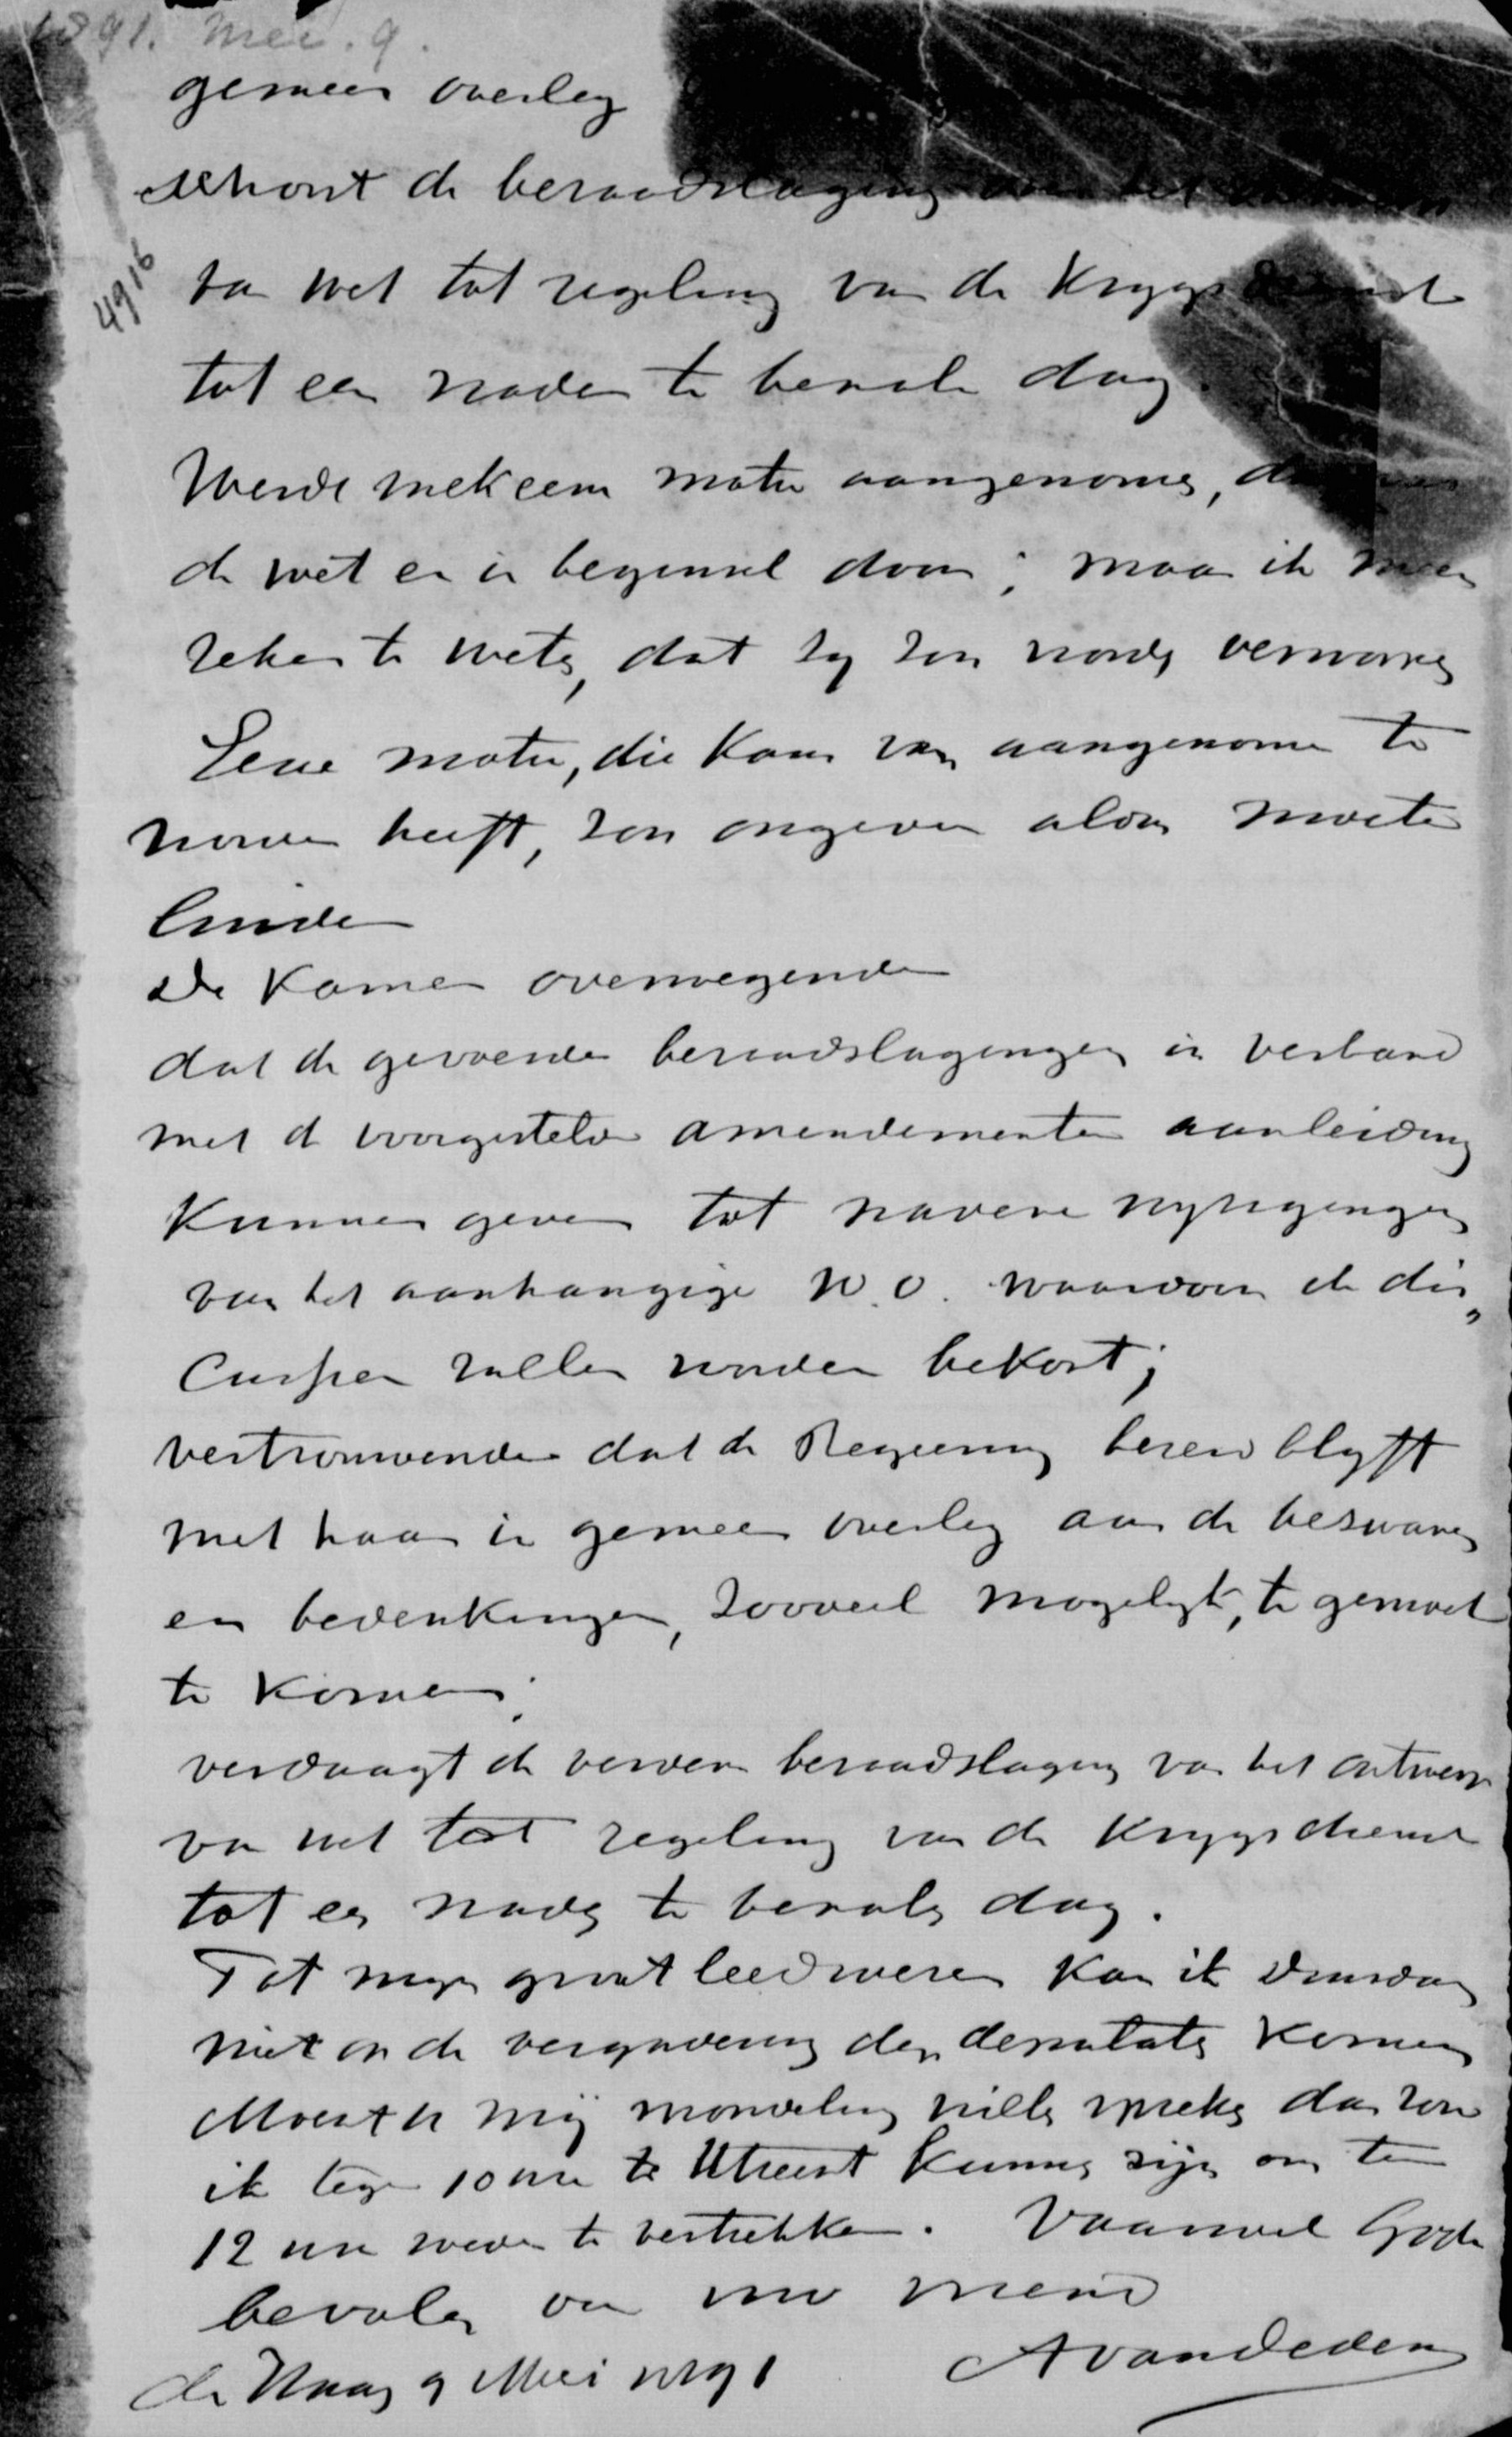 1891. Mei. 9.
gemeen overleg
schorst de beraadslaging over het
4916
van wet tot regeling van de Krygsdienst
tot een nader te bepalen dag.
Werde zulk eene motie aangenomen, dan was
de wet er in beginsel door; maar ik meen
zeker te weten, dat zy zou worden verworpen
Eene motie, die kans van aangenomen te
worden heeft, zou ongeveer aldus moeten
luiden
De Kamer overwegende
dat de gevoerde beraadslagingen in verband
met de voorgestelde amendementen aanleiding
kunnen geven tot nadere wyzigingen
van het aanhangige W.O. waardoor de dis„
cussien zullen worden bekort;
vertrouwende dat de Regeering bereid blyft
met haar in gemeen overleg aan de bezwaren
en bedenkingen, zooveel mogelyk, te gemoet
te komen;
verdaagt de verdere beraadslaging van het ontwerp
van wet tot regeling van de Krygsdienst
tot een nader te bepalen dag.
Tot myn groot leedwezen kan ik Dinsdag
niet op de vergadering der deputaten komen
Mocht U mij mondeling willen spreken dan zou
ik tegen 10 uur te Utrecht kunnen zijn om ten
12 uur weder te vertrekken. Vaarwel Gode
bevolen van uw vriend
de Haag 9 Mei 1891 AvanDedem